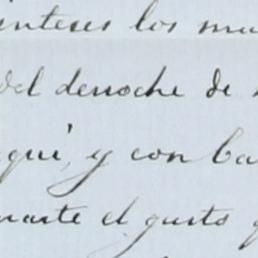 inteses los mu
del derroche de
qui, y con ba
narte el gusto